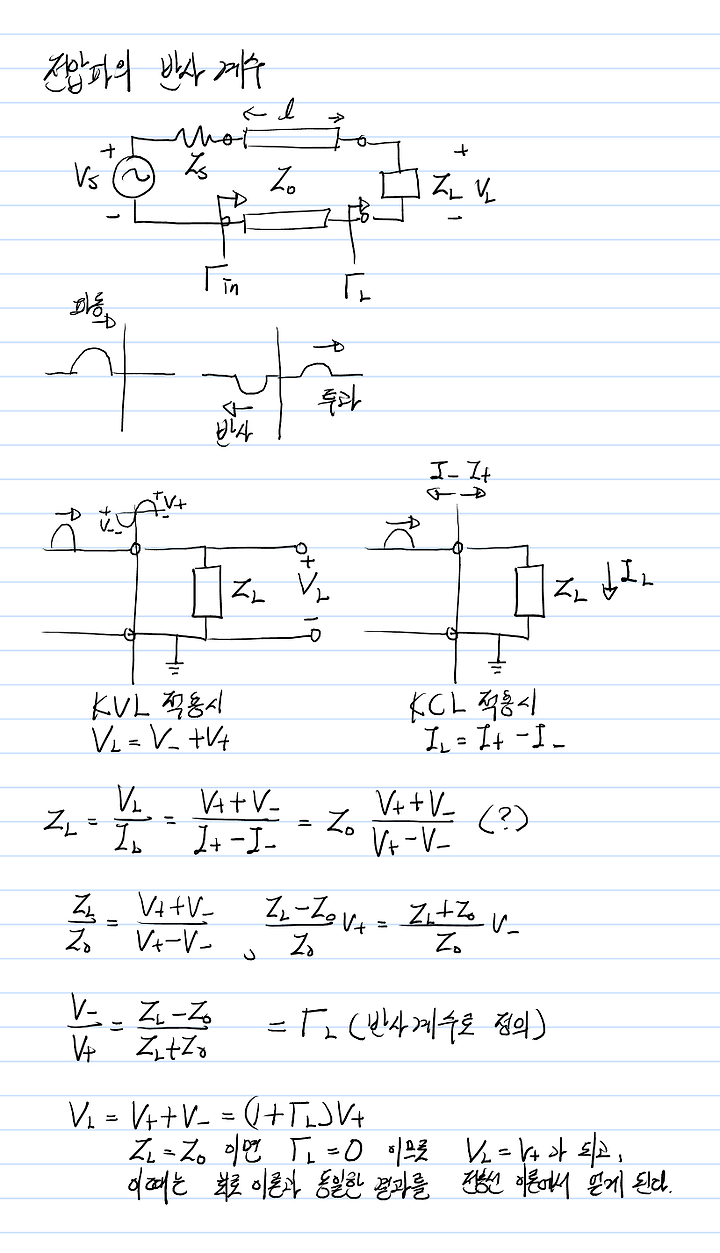 전압파의 반사 계수
← l →
+ Vs - Zs Z₀ + Z_L V_L -
Γin Γ_L
파동
반사 투과
I₋ I₊
+ V₋ + V₊ -
Z_L + V_L - Z_L I_L
KVL 적용시 KCL 적용시
V_L = V₋ + V₊ I_L = I₊ - I₋
Z_L = V_L/I_L = (V₊ + V₋)/(I₊ - I₋) = Z₀ (V₊ + V₋)/(V₊ - V₋) (?)
Z_L/Z₀ = (V₊ + V₋)/(V₊ - V₋) , (Z_L - Z₀)/Z₀ V₊ = (Z_L + Z₀)/Z₀ V₋
V₋/V₊ = (Z_L - Z₀)/(Z_L + Z₀) = Γ_L (반사계수로 정의)
V_L = V₊ + V₋ = (1 + Γ_L)V₊
Z_L = Z₀ 이면 Γ_L = 0 이므로 V_L = V₊ 가 되고,
이때는 회로 이론과 동일한 결과를 전송선 이론에서 얻게 된다.